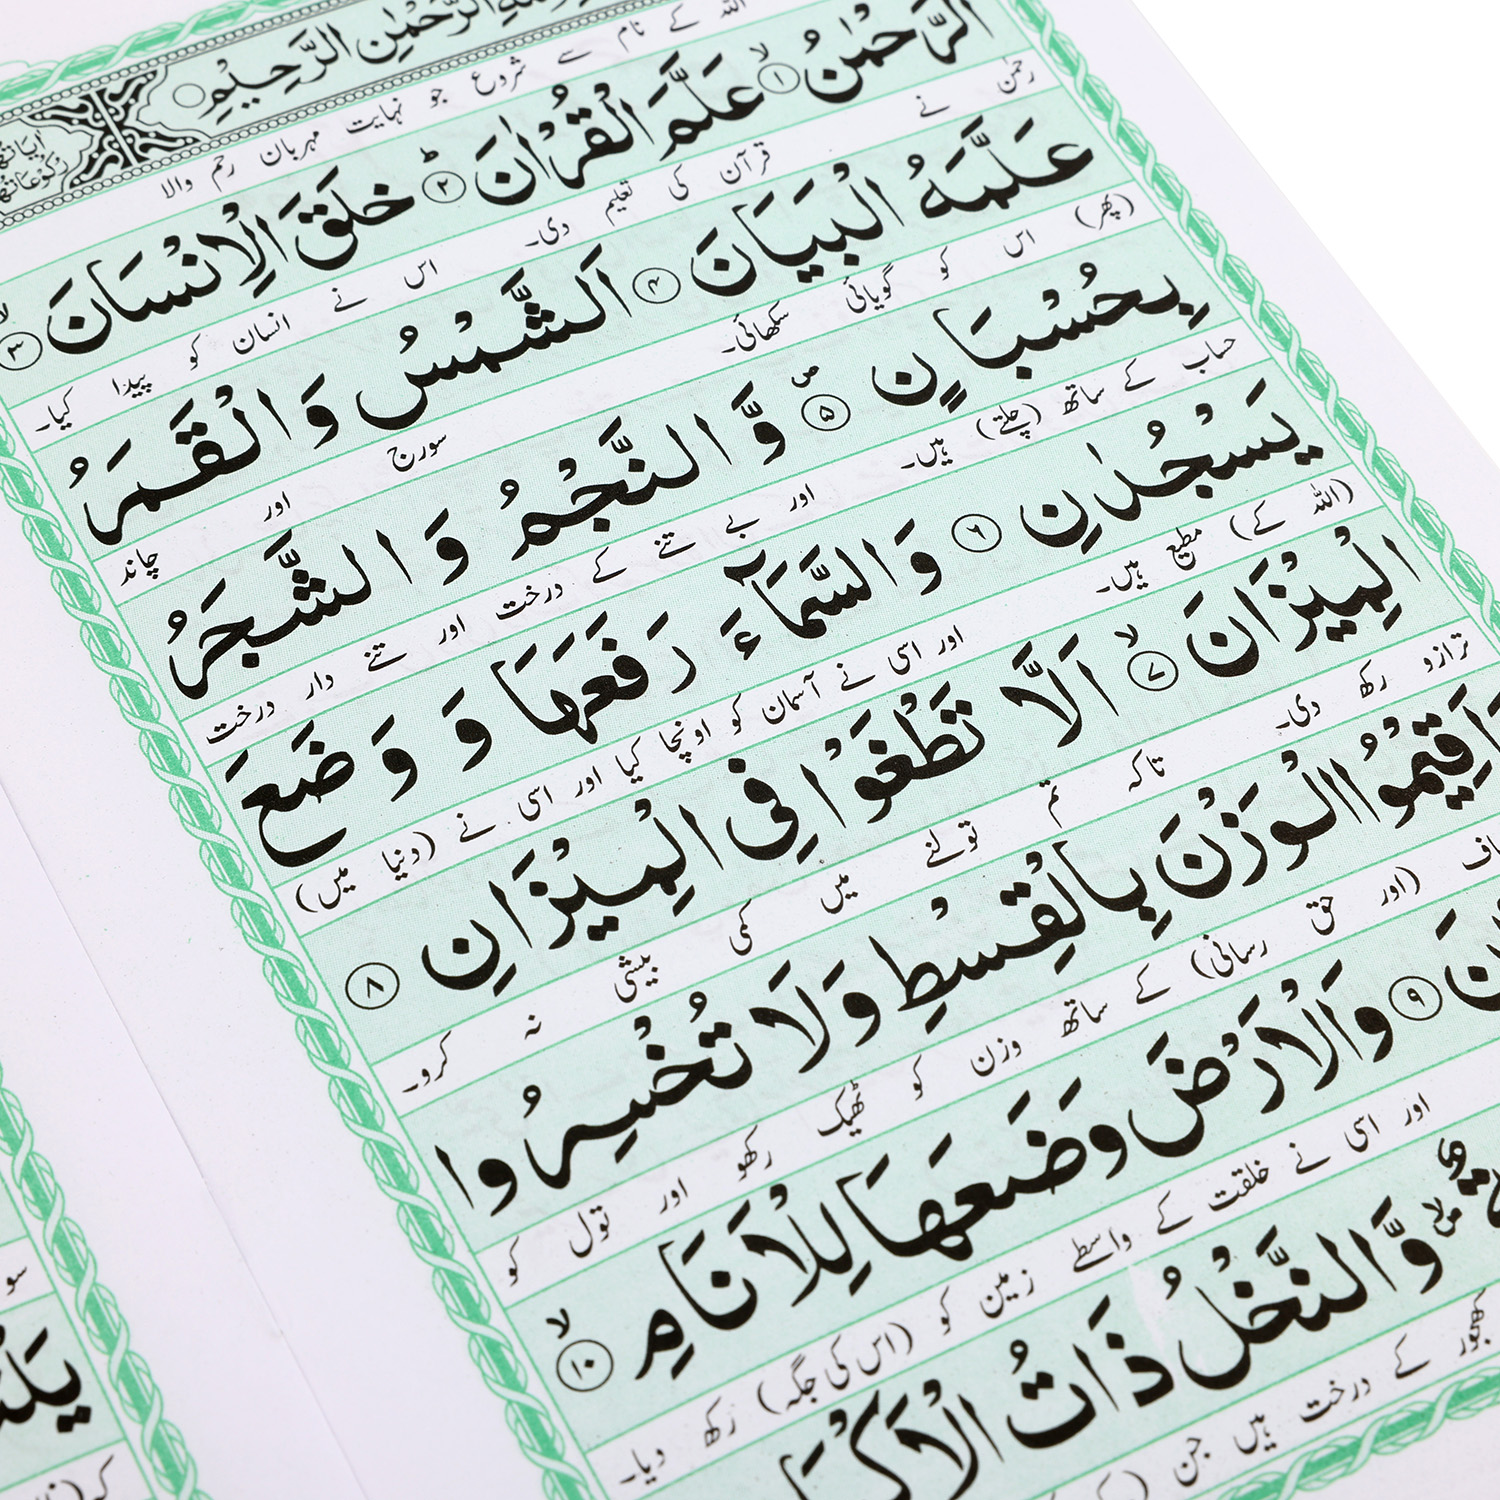 الرَّحْمٰنِ الرَّحِيْمِ
اللہ کے نام سے شروع جو نہایت مہربان رحم والا
اَلرَّحْمٰنُ ۙ﴿۱﴾ عَلَّمَ الْقُرْاٰنَ ؕ﴿۲﴾ خَلَقَ الْاِنْسَانَ ۙ﴿۳﴾
رحمٰن نے قرآن کی تعلیم دی۔ اس نے انسان کو پیدا کیا۔
عَلَّمَهُ الْبَيَانَ ﴿۴﴾ اَلشَّمْسُ وَالْقَمَرُ
(پھر) اس کو گویائی سکھائی۔ سورج اور چاند
بِحُسْبَانٍ ﴿۵﴾ وَّالنَّجْمُ وَالشَّجَرُ
حساب کے ساتھ (چلتے) ہیں۔ اور بے تنے کے درخت اور تنے دار درخت
يَسْجُدٰنِ ﴿۶﴾ وَالسَّمَآءَ رَفَعَهَا وَ وَضَعَ
(اللہ کے) مطیع ہیں۔ اور اسی نے آسمان کو اونچا کیا اور اسی نے (دنیا میں)
الْمِيْزَانَ ۙ﴿۷﴾ اَلَّا تَطْغَوْا فِي الْمِيْزَانِ ﴿۸﴾
ترازو رکھ دی۔ تاکہ تم تولنے میں کمی بیشی نہ کرو۔
وَاَقِيْمُوا الْوَزْنَ بِالْقِسْطِ وَلَا تُخْسِرُوا
(اور حق رسانی) کے ساتھ وزن کو ٹھیک رکھو اور تول کو
﴿۹﴾ وَالْاَرْضَ وَضَعَهَا لِلْاَنَامِ ۙ﴿۱۰﴾
اور اسی نے خلقت کے واسطے زمین کو (اس کی جگہ) رکھ دیا۔
وَّالنَّخْلُ ذَاتُ الْاَكْمَا
کے درخت ہیں جن